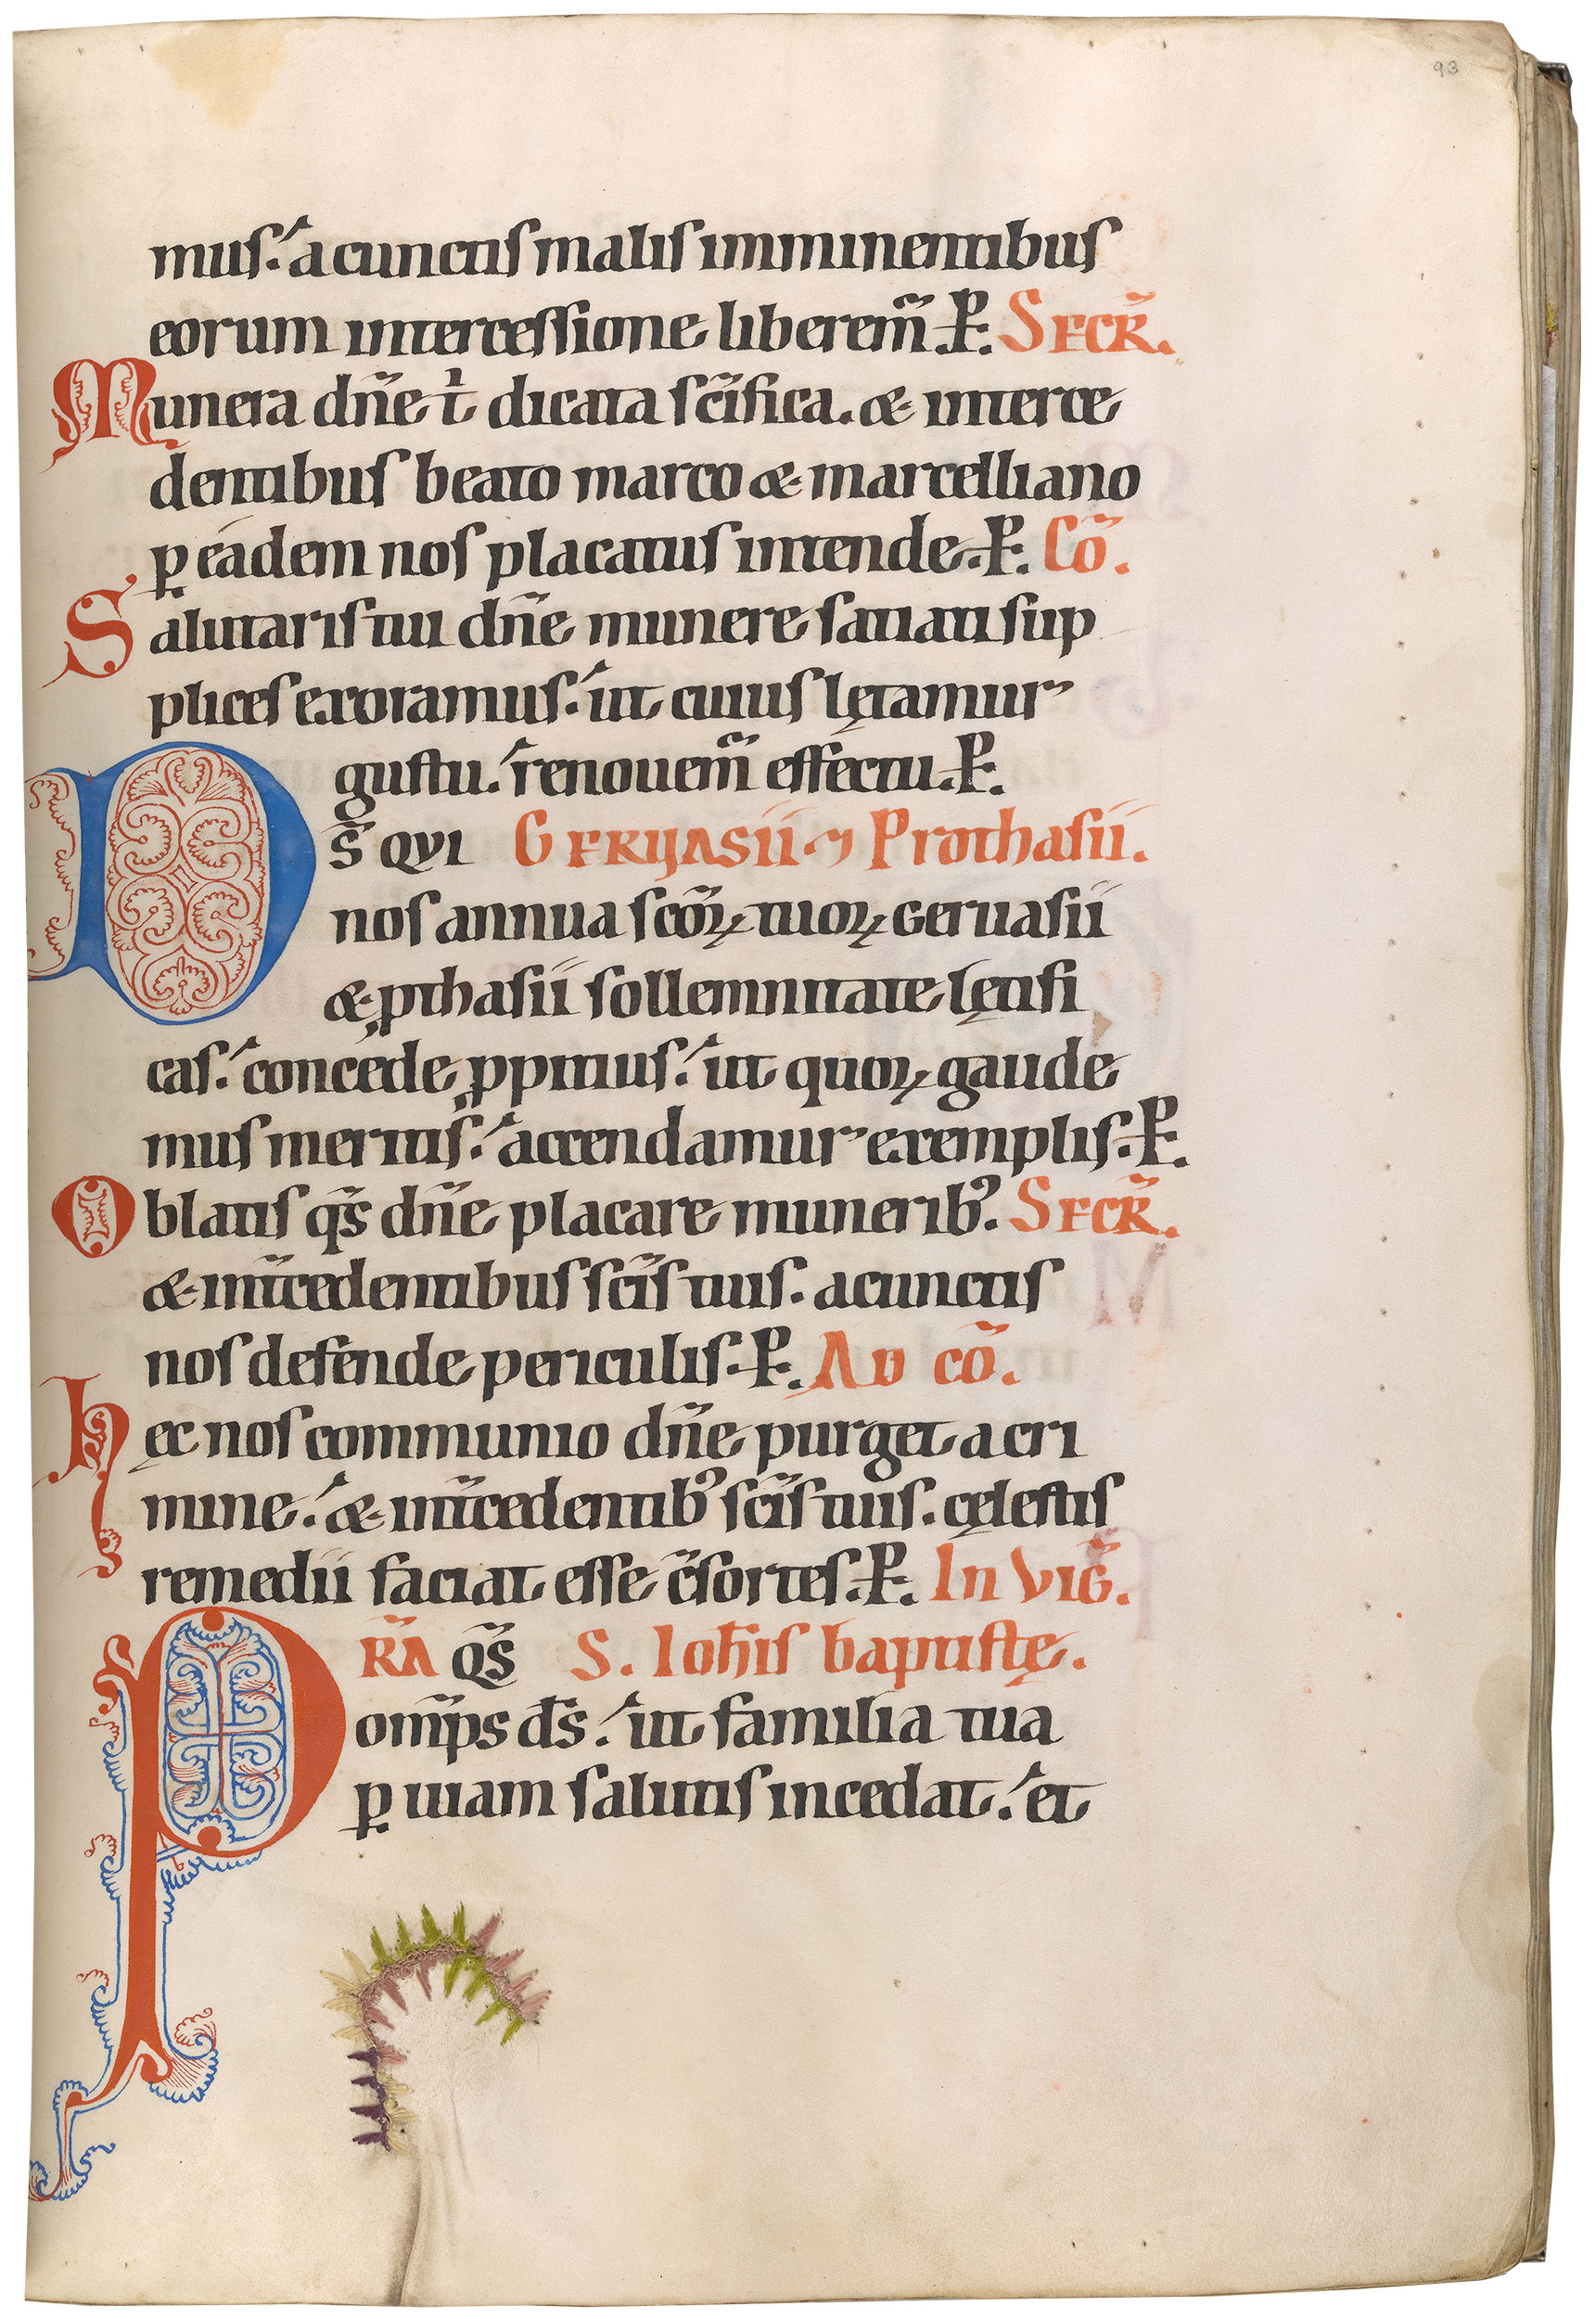 93
mus. a cunctis malis imminentibus
eorum intercessione liberem̃. P. SECR̃.
Munera dñe ti dicata sc̃ifica. & interce
dentibus beato marco & marcelliano
ꝑ eadem nos placatus intende. P. Cõ.
Salutaris tui dñe munere satiati sup
plices exoramus. ut cuius lętamur
gustu. renouem̃ effectu. P.
DS̃ QVI GERVASII & Prothasii.
nos annua sc̃oꝝ tuoꝝ geruasii
& ꝓthasii sollemnitate lętifi
cas. concede ꝓpitius. ut quoꝝ gaude
mus meritis. accendamur exemplis. P.
Oblatis qs̃ dñe placare muneribꝰ. SECR̃.
& int̃cedentibus sc̃is tuis. a cunctis
nos defende periculis. P. AD cõ.
Hęc nos communio dñe purget a cri
mine. & int̃cedentibꝰ sc̃is tuis. cęlestis
remedii faciat esse c̃sortes. P. In VIG̃.
PR̃A QS̃ S. Ioħis baptistę.
omp̃s ds̃. ut familia tua
ꝑ uiam salutis incedat. et